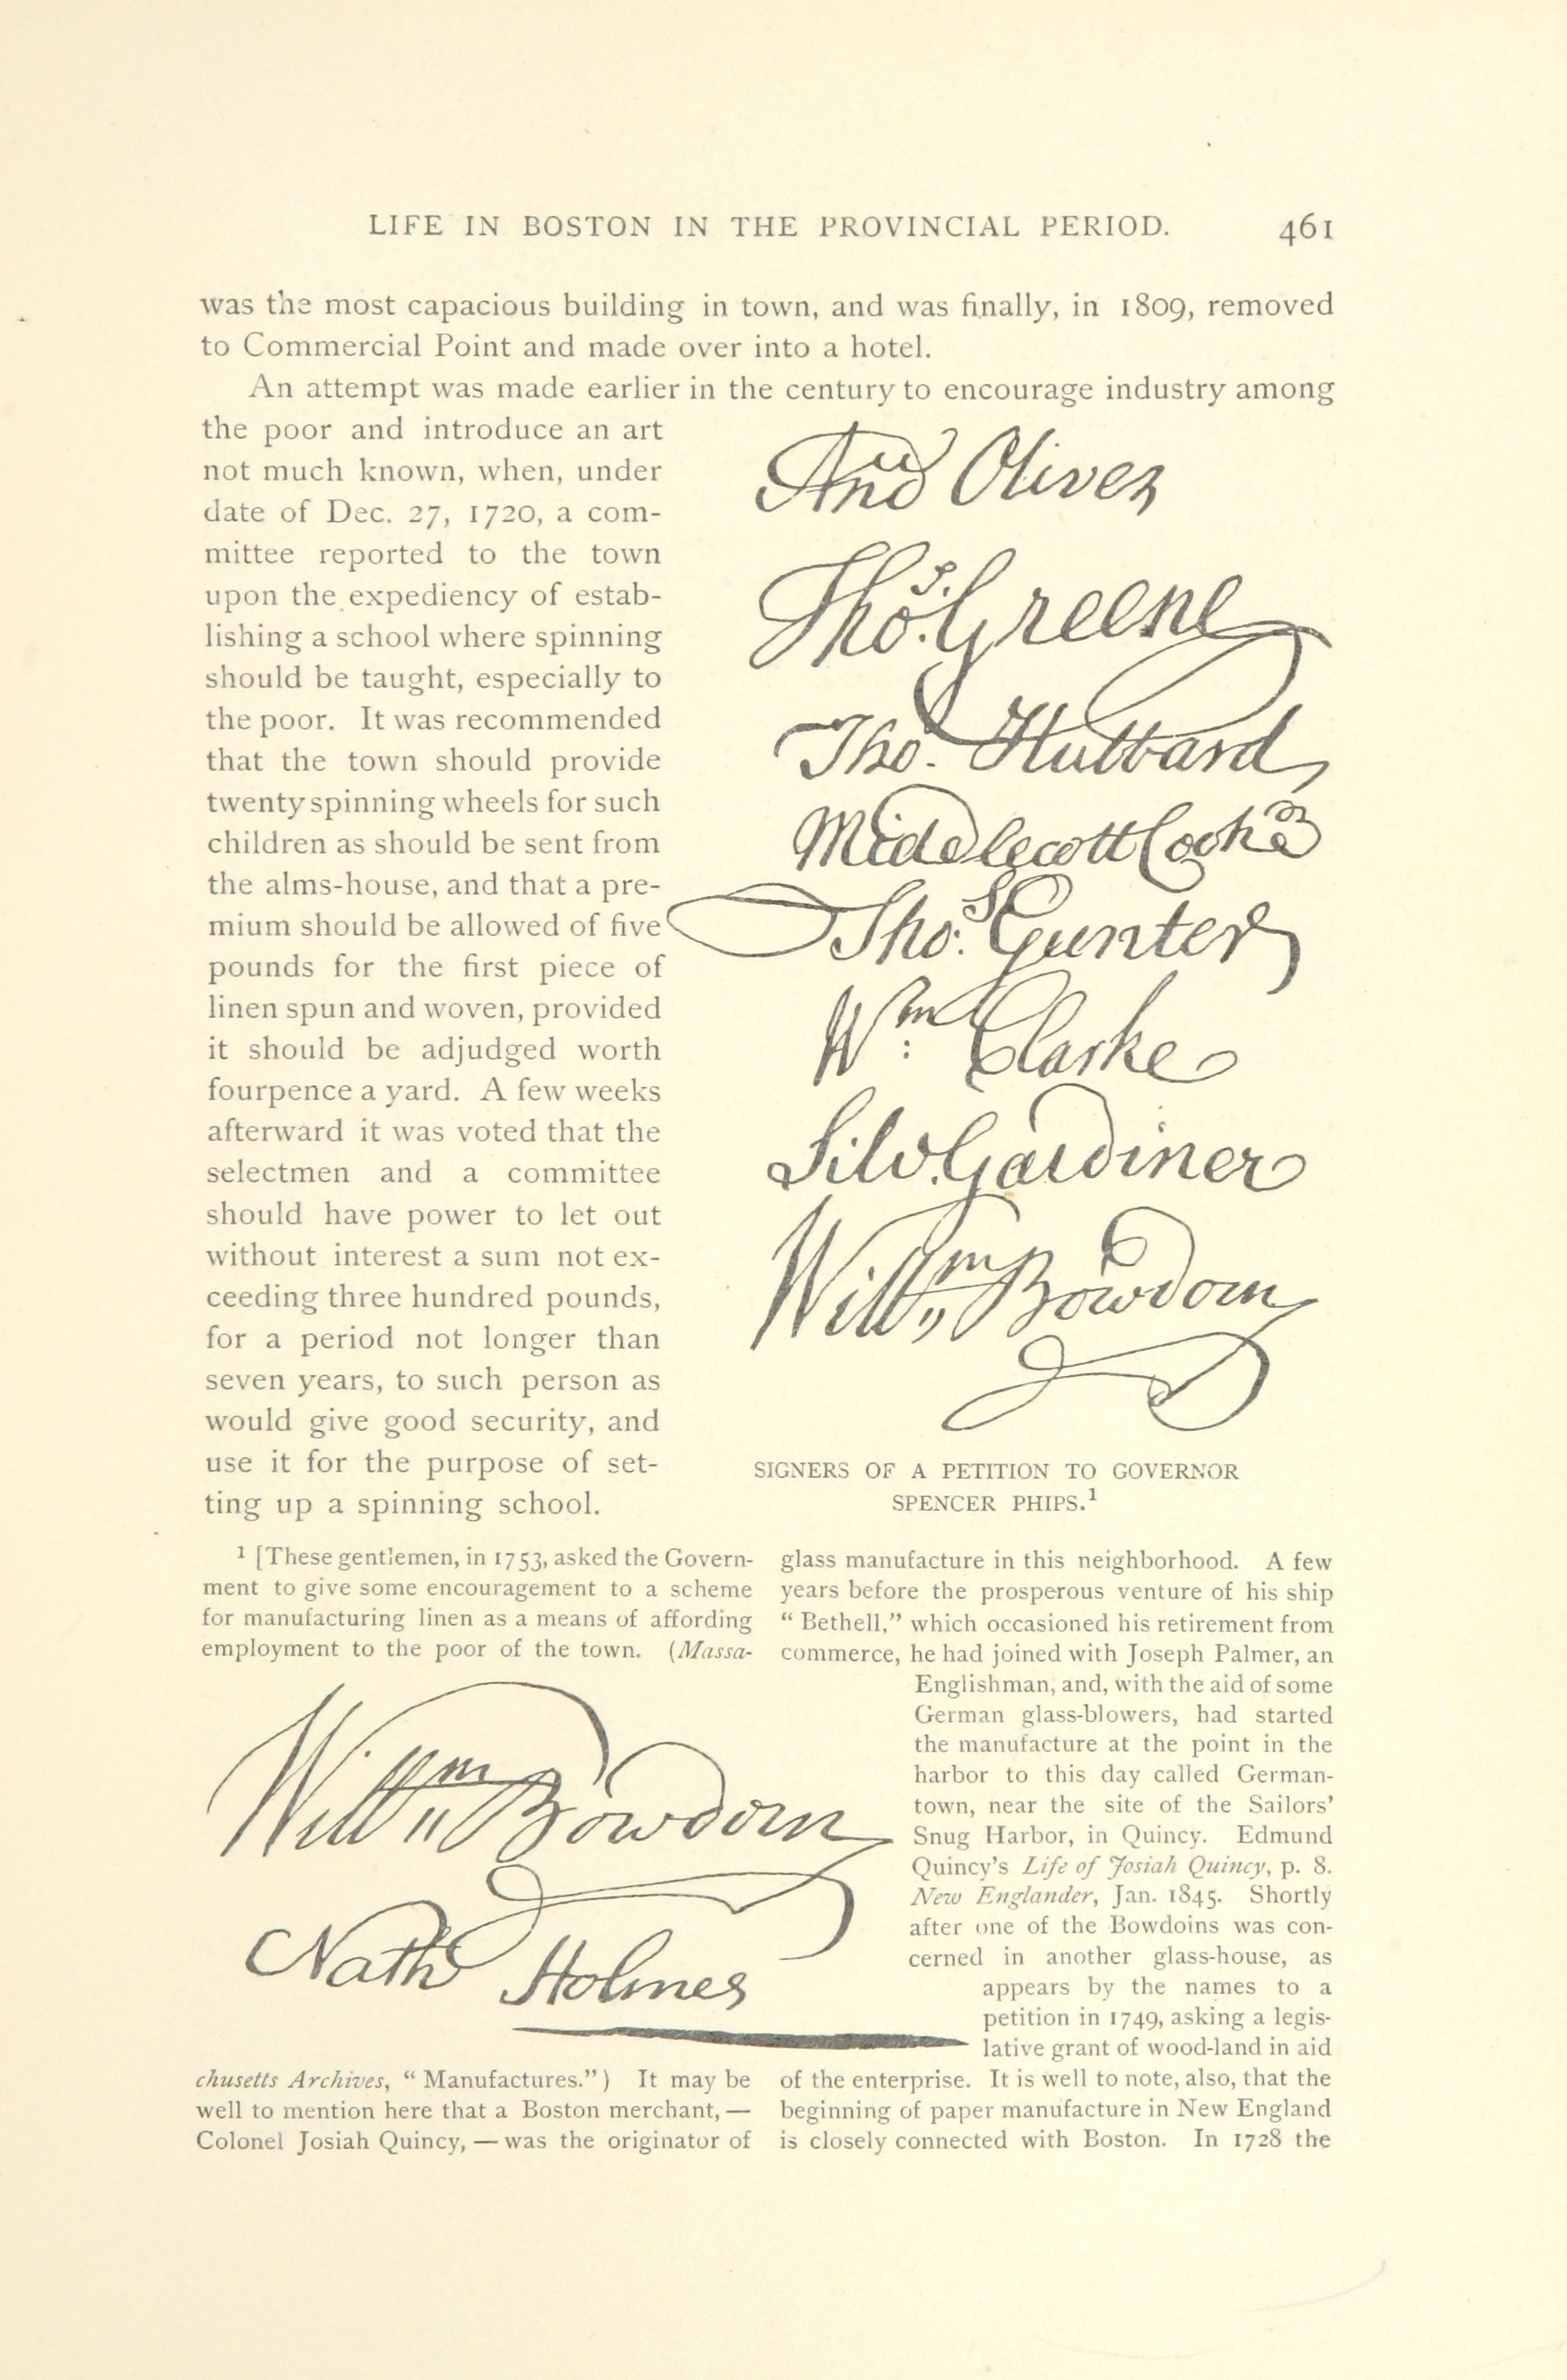 LIFE IN BOSTON IN THE PROVINCIAL PERIOD. 461
was the most capacious building in town, and was finally, in 1809, removed
to Commercial Point and made over into a hotel.
An attempt was made earlier in the century to encourage industry among
the poor and introduce an art
not much known, when, under
date of Dec. 27, 1720, a com-
mittee reported to the town
upon the expediency of estab-
lishing a school where spinning
should be taught, especially to
the poor. It was recommended
that the town should provide
twenty spinning wheels for such
children as should be sent from
the alms-house, and that a pre-
mium should be allowed of five
pounds for the first piece of
linen spun and woven, provided
it should be adjudged worth
fourpence a yard. A few weeks
afterward it was voted that the
selectmen and a committee
should have power to let out
without interest a sum not ex-
ceeding three hundred pounds,
for a period not longer than
seven years, to such person as
would give good security, and
use it for the purpose of set-
ting up a spinning school.
And Oliver
Thos. Greene
Tho. Hubbard
Middlecott Cooke
Thos. Gunter
Wm. Clarke
Silv. Gardiner
Willm Bowdoin
SIGNERS OF A PETITION TO GOVERNOR
SPENCER PHIPS.¹
¹ [These gentlemen, in 1753, asked the Govern-
ment to give some encouragement to a scheme
for manufacturing linen as a means of affording
employment to the poor of the town. (Massa-
Willm Bowdoin
Nath Holmes
chusetts Archives, “Manufactures.”) It may be
well to mention here that a Boston merchant, —
Colonel Josiah Quincy, — was the originator of
glass manufacture in this neighborhood. A few
years before the prosperous venture of his ship
“Bethell,” which occasioned his retirement from
commerce, he had joined with Joseph Palmer, an
Englishman, and, with the aid of some
German glass-blowers, had started
the manufacture at the point in the
harbor to this day called German-
town, near the site of the Sailors’
Snug Harbor, in Quincy. Edmund
Quincy’s Life of Josiah Quincy, p. 8.
New Englander, Jan. 1845. Shortly
after one of the Bowdoins was con-
cerned in another glass-house, as
appears by the names to a
petition in 1749, asking a legis-
lative grant of wood-land in aid
of the enterprise. It is well to note, also, that the
beginning of paper manufacture in New England
is closely connected with Boston. In 1728 the